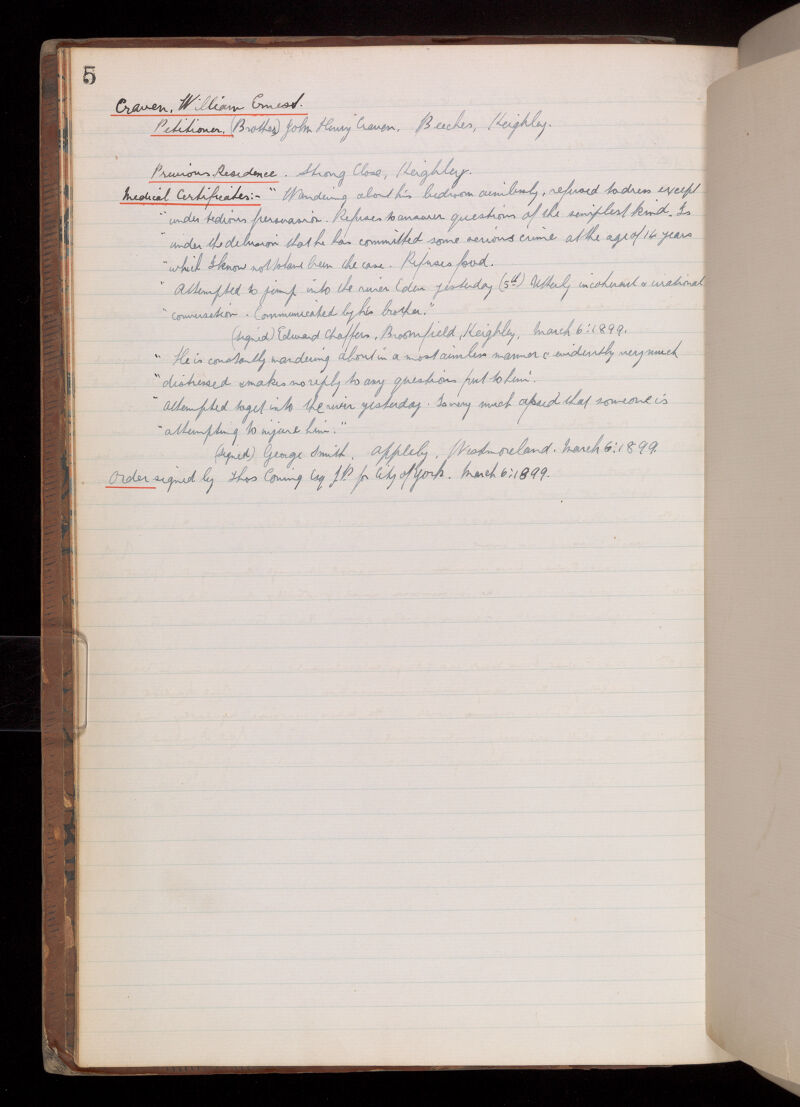 5
Craven, William Ernest.
Petitioner, (Brother) John Henry Craven, Beeches, Keighley.
Previous Residence. Strong Close, Keighley.
Medical Certificates:- " Wandering about his bedroom aimlessly, refused to dress except
" under tedious persuasion. Refuses to answer questions of the simplest kind. Is
" under the delusion that he has committed some serious crime at the age of 14 years
" which I know not to have been the case. Refuses food.
" Attempted to jump into the river Eden yesterday (5th) Utterly incoherent & irrational
" conversation. Communicated by his brother."
(signed) Edward Chaffers, Broomfield, Keighley, March 6: 1899.
" He is constantly wandering about in a most aimless manner & evidently very much
" distressed & makes no reply to any questions put to him.
" Attempted to get into the river yesterday. Is very much afraid that someone is
" attempting to injure him."
(signed) George Smith, Appleby, Westmoreland. March 6: 1899.
Order signed by Thos Esq J.P. for City of York. March 6: 1899.